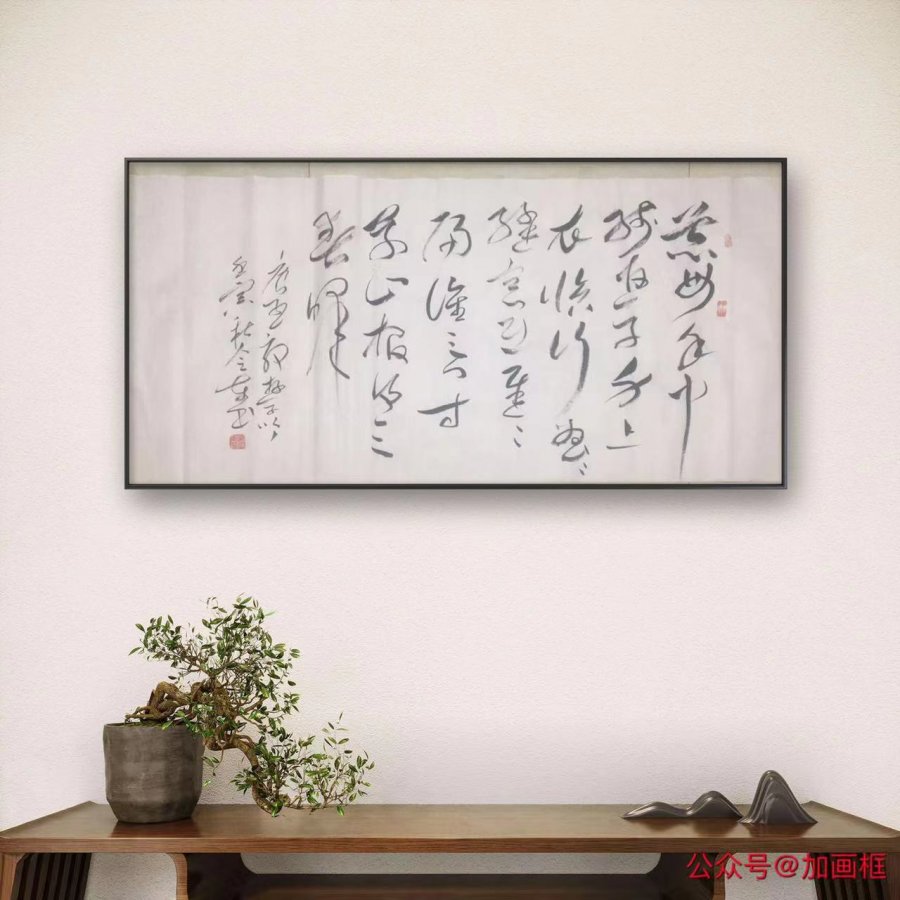 慈母手中
线游子身上
衣临行密〻
缝意恐迟〻
归谁言寸
草心报得三
春晖
唐孟郊游子吟
书
公众号@加画框